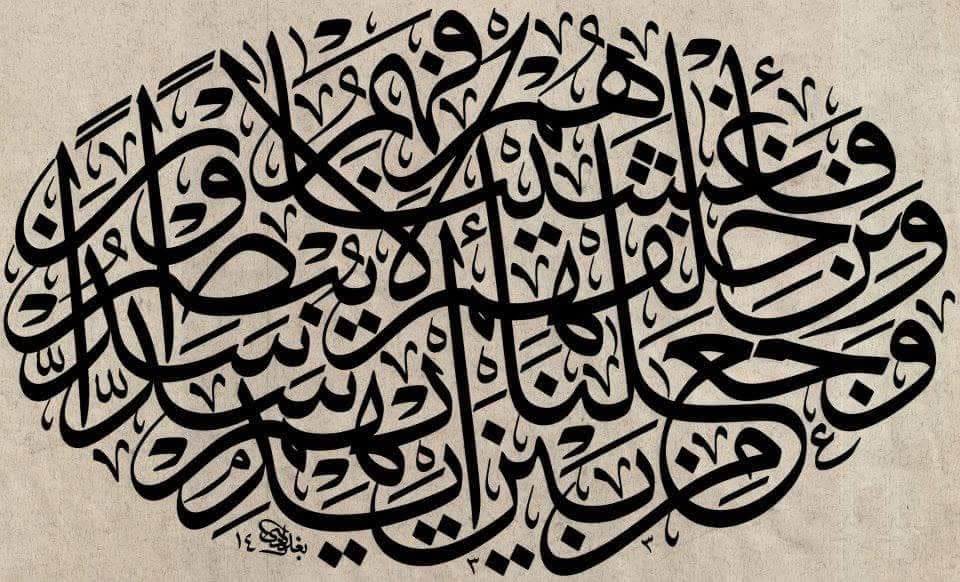 وَجَعَلْنَا مِنْ بَيْنِ أَيْدِيهِمْ سَدًّا
وَمِنْ خَلْفِهِمْ سَدًّا
فَأَغْشَيْنَاهُمْ فَهُمْ لَا يُبْصِرُونَ
١٤
٣ ٣